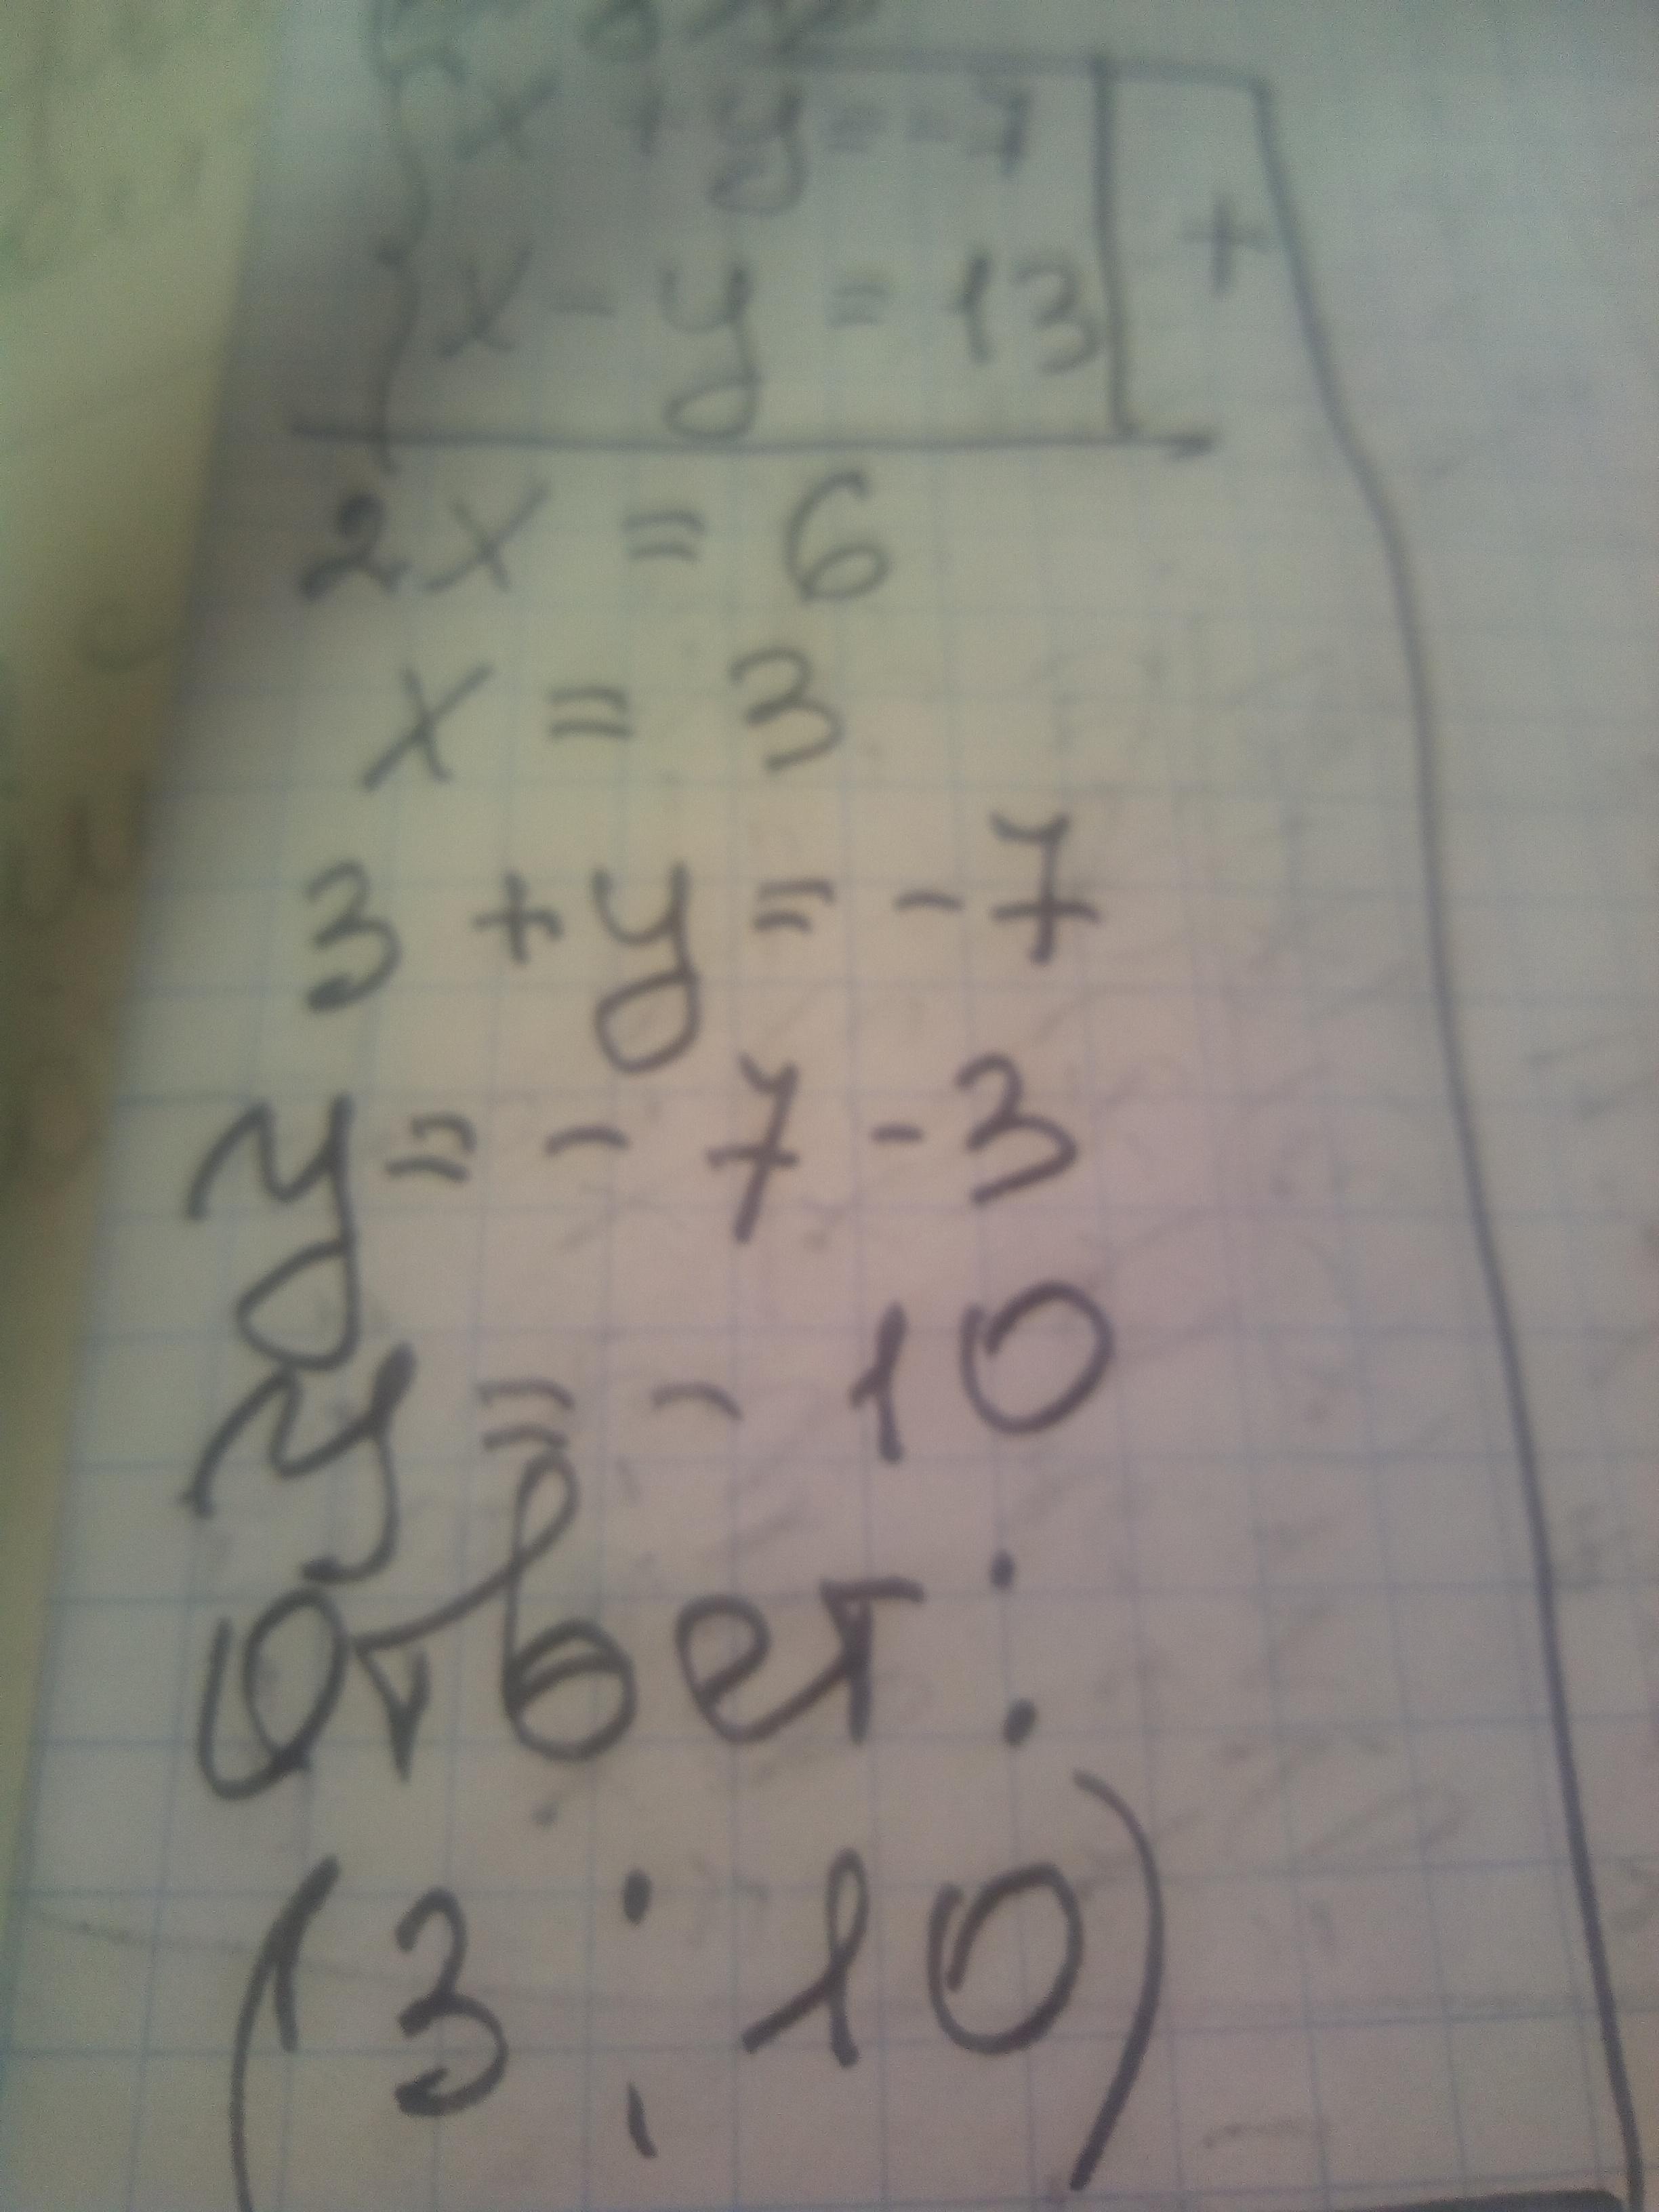 x + y = -7
x - y = 13
+
2x = 6
x = 3
3 + y = -7
y = -7 - 3
y = -10
Ответ:
(3; 10)